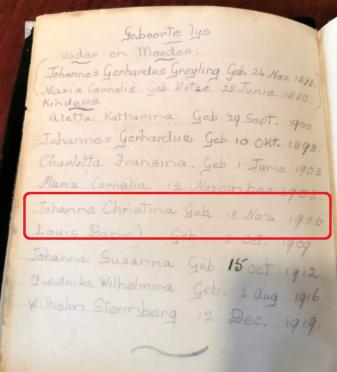 Geboorte lys
Vader en Moeder.
Johannes Gerhardus Greyling Geb. 24 Nov. 1875.
Maria Cornelia. Geb. Kotze 25 Junie 1880.
Kinders
Aletta Katharina Geb 29 Sept. 1900
Johannes Gerhardus Geb 10 Okt.
Charlotta Fransina. Geb 1 Junie 1903
Maria Cornelia 12 November
Johanna Christina Geb. 15 Nov. 1906
Louis Geb Oct. 1909
Johanna Susanna Geb 15 Oct 1912
Fredrika Wilhelmina Geb. 6 Aug 1916
Wilhelm Sternberg 12 Dec. 1919.